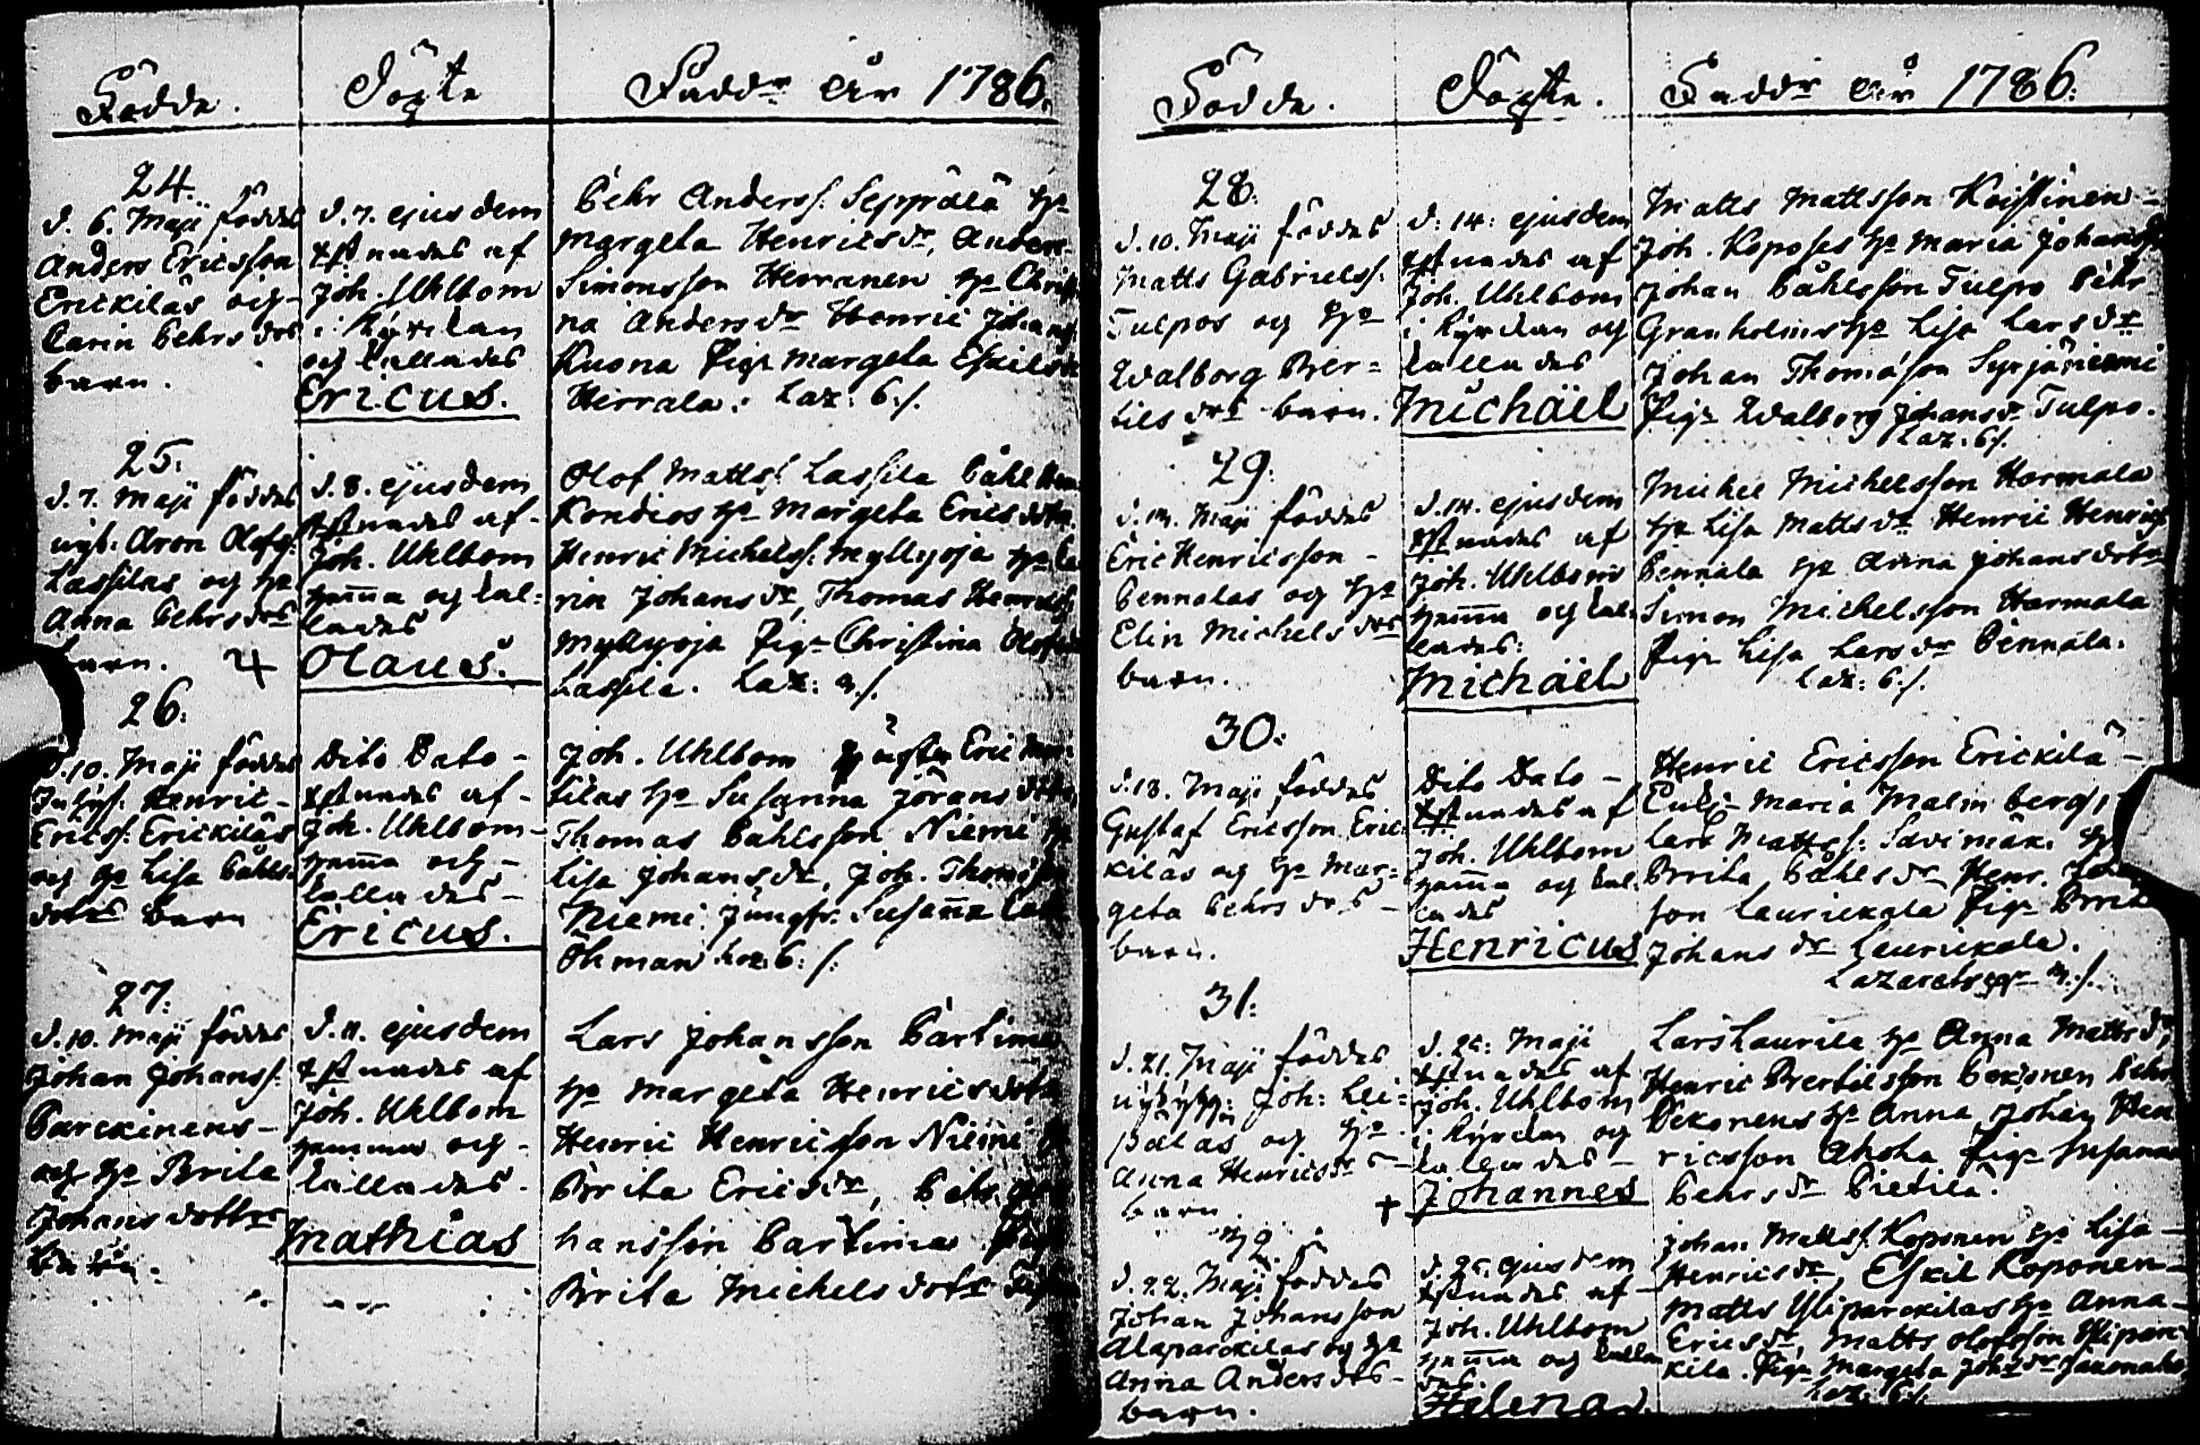 Födde.
Döpte
Fadd:r år 1786.
24.
d. 6. Maji föddes
Anders Ericsson
Erickiläs och
Carin Pehrs drs
barn.
d. 7. ejusdem
xstnades af
Joh. Uhlbom
i Kyrckan
och kallades
Ericus.
Pehr Anders s. Seppälä h:o
Margeta Henrics dr, Anders
Simonsson Herranen h:o Christi
na Anders dr Henric Johans
Kuona Pig: Margeta Eskils dr
Hirrala. Laz: 6 s.
25.
d. 7. Maji föddes
Aron Olofs s.
Lassilas och h:o
Anna Pehrs drs
barn. 4
d. 8. ejusdem
xstnades af
Joh. Uhlbom
hemma och kal:
lades
Olaus.
Olof Matts s. Lassila Påhl Hen
Kondios h:o Margeta Erics dotr.
Henric Michels s. Myllyoja h:o Ca
rin Johans dr, Thomas Henrics s.
Myllyoja Pig: Christina Olofs d
Lassila. Laz: 3 s.
26.
d. 10. Maji föddes
Inhys. Henric
Erics s. Erickiläs
och h:o Lisa Påhls
dotrs barn
Dito Dato -
xstnades af -
Joh. Uhlbom -
hemma och -
kallades -
Ericus.
Joh. Uhlbom Eric
tilas h:o Susanna Jörans dotr,
Thomas Påhlsson Niemi h:o
Lisa Johans dr, Joh. Thomasson
Niemi. Jungfr. Susanna
Öhman Laz: 6: s:
27.
d. 10. Maji föddes
Johan Johans s.
Parckinens -
och h:o Brita
Johans dotters
barn.
d. 11. ejusdem
xstnades af
Joh. Uhlbom
hemma och -
kallades -
Mathias
Lars Johansson Partima
h:o Margeta Henrics dotr
Henric Henricsson Niemi h:o
Brita Erics dr, Pehr Jo
hansson Partima Pig
Brita Michels dotr
Födde.
Döpte.
Fadd:r år 1786.
28.
d. 10. Maji föddes
Matts Gabriels s.
Tulpos och h:o
Walborg Ber=
tils drs barn.
d: 14: ejusdem
xstnades af
Joh. Uhlbom
i Kyrckan och
kallades
Michäel
Matts Mattsson Koistinen -
Joh. Koposes h:o Maria Johans dr
Johan Påhlsson Tulpo Pehr
Granholms h:o Lisa Lars dr
Johan Thomasson Syrjäniemi
Pig: Walborg Johans dr Tulpo.
Laz: 6 s.
29.
d. 13. Maji föddes
Eric Henricsson -
Pennalas och h:o
Elin Michels drs
barn.
d. 14. ejusdem
xstnades af
Joh. Uhlbom
hemma och kal:
lades:
Michäel
Michel Michelsson Harmala
h:o Lisa Matts dr Henric Henrics s.
Pennala h:o Anna Johans dotr
Simon Michelsson Harmala
Pig: Lisa Lars dr Pennala.
Laz: 6 s.
30.
d. 13. Maji föddes
Gustaf Ericsson Eric
kiläs och h:o Mar=
geta Pehrs drs -
barn.
Dito Dato -
xstnades af
Joh. Uhlbom
hemma och kal:
lades
Henricus
Henric Ericsson Erickilä -
Maria Malmberg,
Lars Matts s. Savimäki h:o
Brita Påhls dr Henr.
son Laurickala Pig: Brita
Johans dr Laurickala.
Lazarets 3 s.
31.
d. 21. Maji föddes
Joh: Lei=
pälas och h:o
Anna Henrics drs
barn. †
d. 25: Maji
xstnades af
Joh. Uhlbom
i Kyrckan och
kallades -
Johannes
Lars Laurila h:o Anna Matts dr,
Henric Bertilsson Pekonen Pehr
Pekonens h:o Anna, Johan Hen
ricsson Ahola Pig: Susanna
Pehrs dr Pietilä.
32.
d. 22. Maji föddes
Johan Johansson
Alaparckilas och h:o
Anna Anders drs -
barn.
d. 25. ejusdem
xstnades af -
Joh. Uhlbom
hemma och kalla
des.
Helena.
Johan Matts s. Koponen h:o Lisa -
Henrics dr, Eskil Koponen -
Matts Yliparckilas h:o Anna -
Erics dr, Matts Olofsson Ylipar
kila. Pig: Margeta Joh: dr
Laz: 6 s.